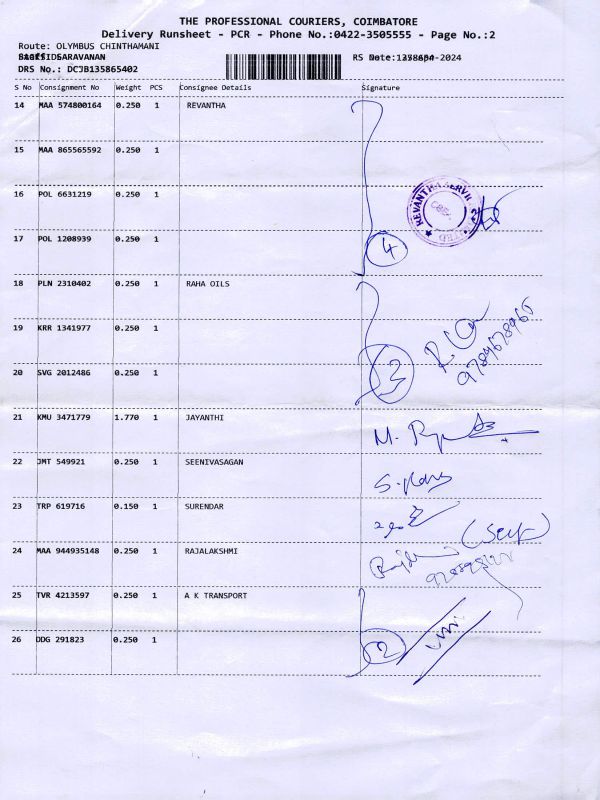 THE PROFESSIONAL COURIERS, COIMBATORE
Delivery Runsheet - PCR - Phone No.:0422-3505555 - Page No.:2
Route: OLYMBUS CHINTHAMANI
SARAVANAN
RS
DRS No.: DCJB135865402
S No Consignment No Weight PCS Consignee Details Signature
14 MAA 574800164 0.250 1 REVANTHA
15 MAA 865565592 0.250 1
16 POL 6631219 0.250 1
REVANTHA SERVI
CBE
17 POL 1208939 0.250 1
4
18 PLN 2310402 0.250 1 RAHA OILS
19 KRR 1341977 0.250 1
20 SVG 2012486 0.250 1
3
21 KMU 3471779 1.770 1 JAYANTHI
M.
22 JMT 549921 0.250 1 SEENIVASAGAN
S.
23 TRP 619716 0.150 1 SURENDAR
24 MAA 944935148 0.250 1 RAJALAKSHMI
25 TVR 4213597 0.250 1 A K TRANSPORT
26 DDG 291823 0.250 1
2